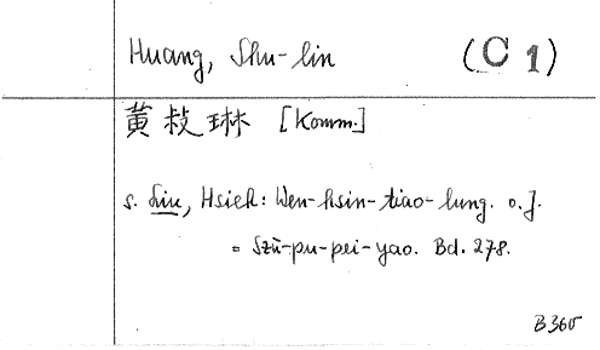 Huang, Shu-lin (C 1)
黄叔琳 [Komm.]
s. Liu, Hsieh: Wen-hsin-tiao-lung. o.J.
= Szŭ-pu-pei-yao. Bd. 278.
B 360